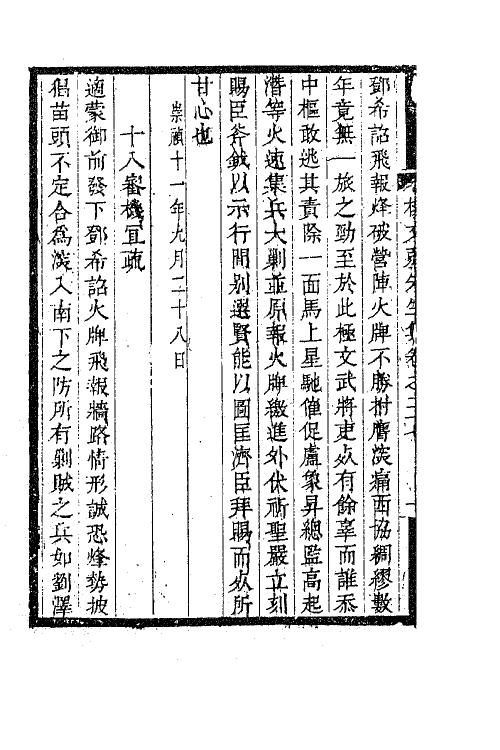 鄧希詔飛報烽破營陣火牌不勝拊膺淡痛西協綢繆數
年竟無一旅之勁至於此極文武將吏死有餘辜而誰忝
中樞敢逃其責除一面馬上星馳催促盧象昇總監高起
潛等火速集兵大剿並原報火牌繳進外伏祈聖嚴立刻
賜臣斧鉞以示行間別選賢能以圖匡濟臣拜賜而死所
甘心也
崇禎十一年九月二十八日
十八審機宜疏
適蒙御前發下鄧希詔火牌飛報牆路情形誠恐烽勢披
猖苗頭不定合為淡入南下之防所有剿賊之兵如劉澤